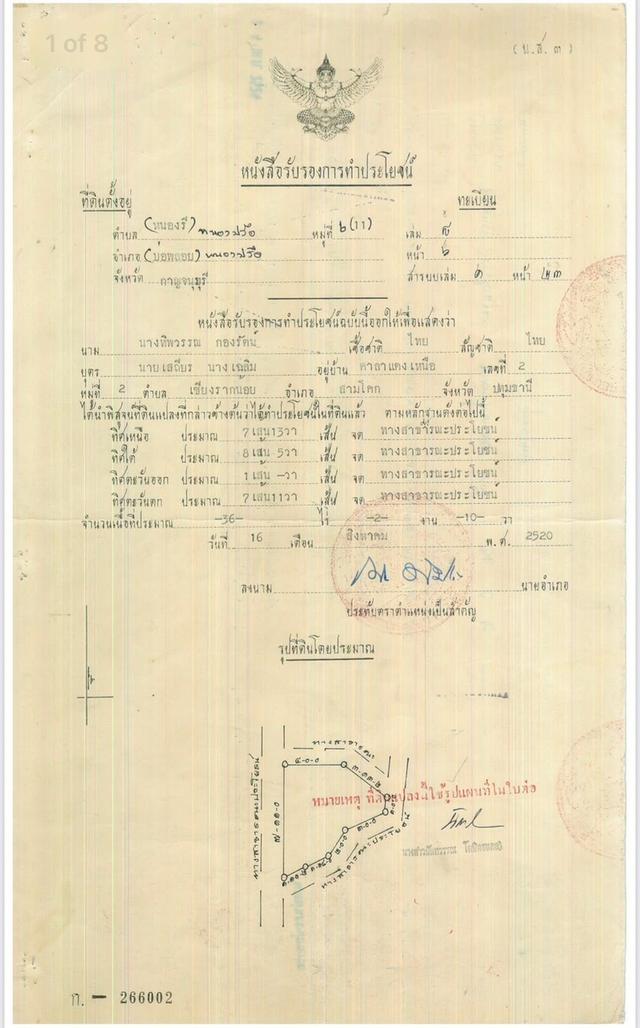 1 of 8
(น.ส.๓)
หนังสือรับรองการทำประโยชน์
ที่ดินตั้งอยู่ ทะเบียน
ตำบล (หนองรี) หนองปรือ หมู่ที่ ๖ (11) เล่ม
อำเภอ (บ่อพลอย) หนองปรือ หน้า ๖
จังหวัด กาญจนบุรี สารบบเล่ม หน้า
หนังสือรับรองการทำประโยชน์ฉบับนี้ออกให้เพื่อแสดงว่า
นาม นางทิพวรรณ กองรัตน์ เชื้อชาติ ไทย สัญชาติ ไทย
บุตร นายเสถียร นางเฉลิม อยู่บ้าน ศาลาแดงเหนือ เลขที่ 2
หมู่ที่ 2 ตำบล เชียงรากน้อย อำเภอ สามโคก จังหวัด ปทุมธานี
ได้นำพิสูจน์ที่ดินแปลงที่กล่าวข้างต้นว่าได้ทำประโยชน์ในที่ดินแล้ว ตามหลักฐานดังต่อไปนี้
ทิศเหนือ ประมาณ 7 เส้น 13 วา เส้น จด ทางสาธารณะประโยชน์
ทิศใต้ ประมาณ 8 เส้น 5 วา เส้น จด ทางสาธารณะประโยชน์
ทิศตะวันออก ประมาณ 1 เส้น - วา เส้น จด ทางสาธารณะประโยชน์
ทิศตะวันตก ประมาณ 7 เส้น 11 วา เส้น จด ทางสาธารณะประโยชน์
จำนวนเนื้อที่ประมาณ -36- ไร่ -2- งาน -10- วา
วันที่ 16 เดือน สิงหาคม พ.ศ. 2520
ลงนาม นายอำเภอ
ประทับตราตำแหน่งเป็นสำคัญ
รูปที่ดินโดยประมาณ
ทางสาธารณะ
๔-๐-๐
๓-๑๓-๒
ทางสาธารณะประโยชน์
๗-๑๑-๐
หมายเหตุ ที่ดินแปลงนี้ใช้รูปแผนที่ในใบต่อ
ทางสาธารณะประโยชน์
ก. - 266002